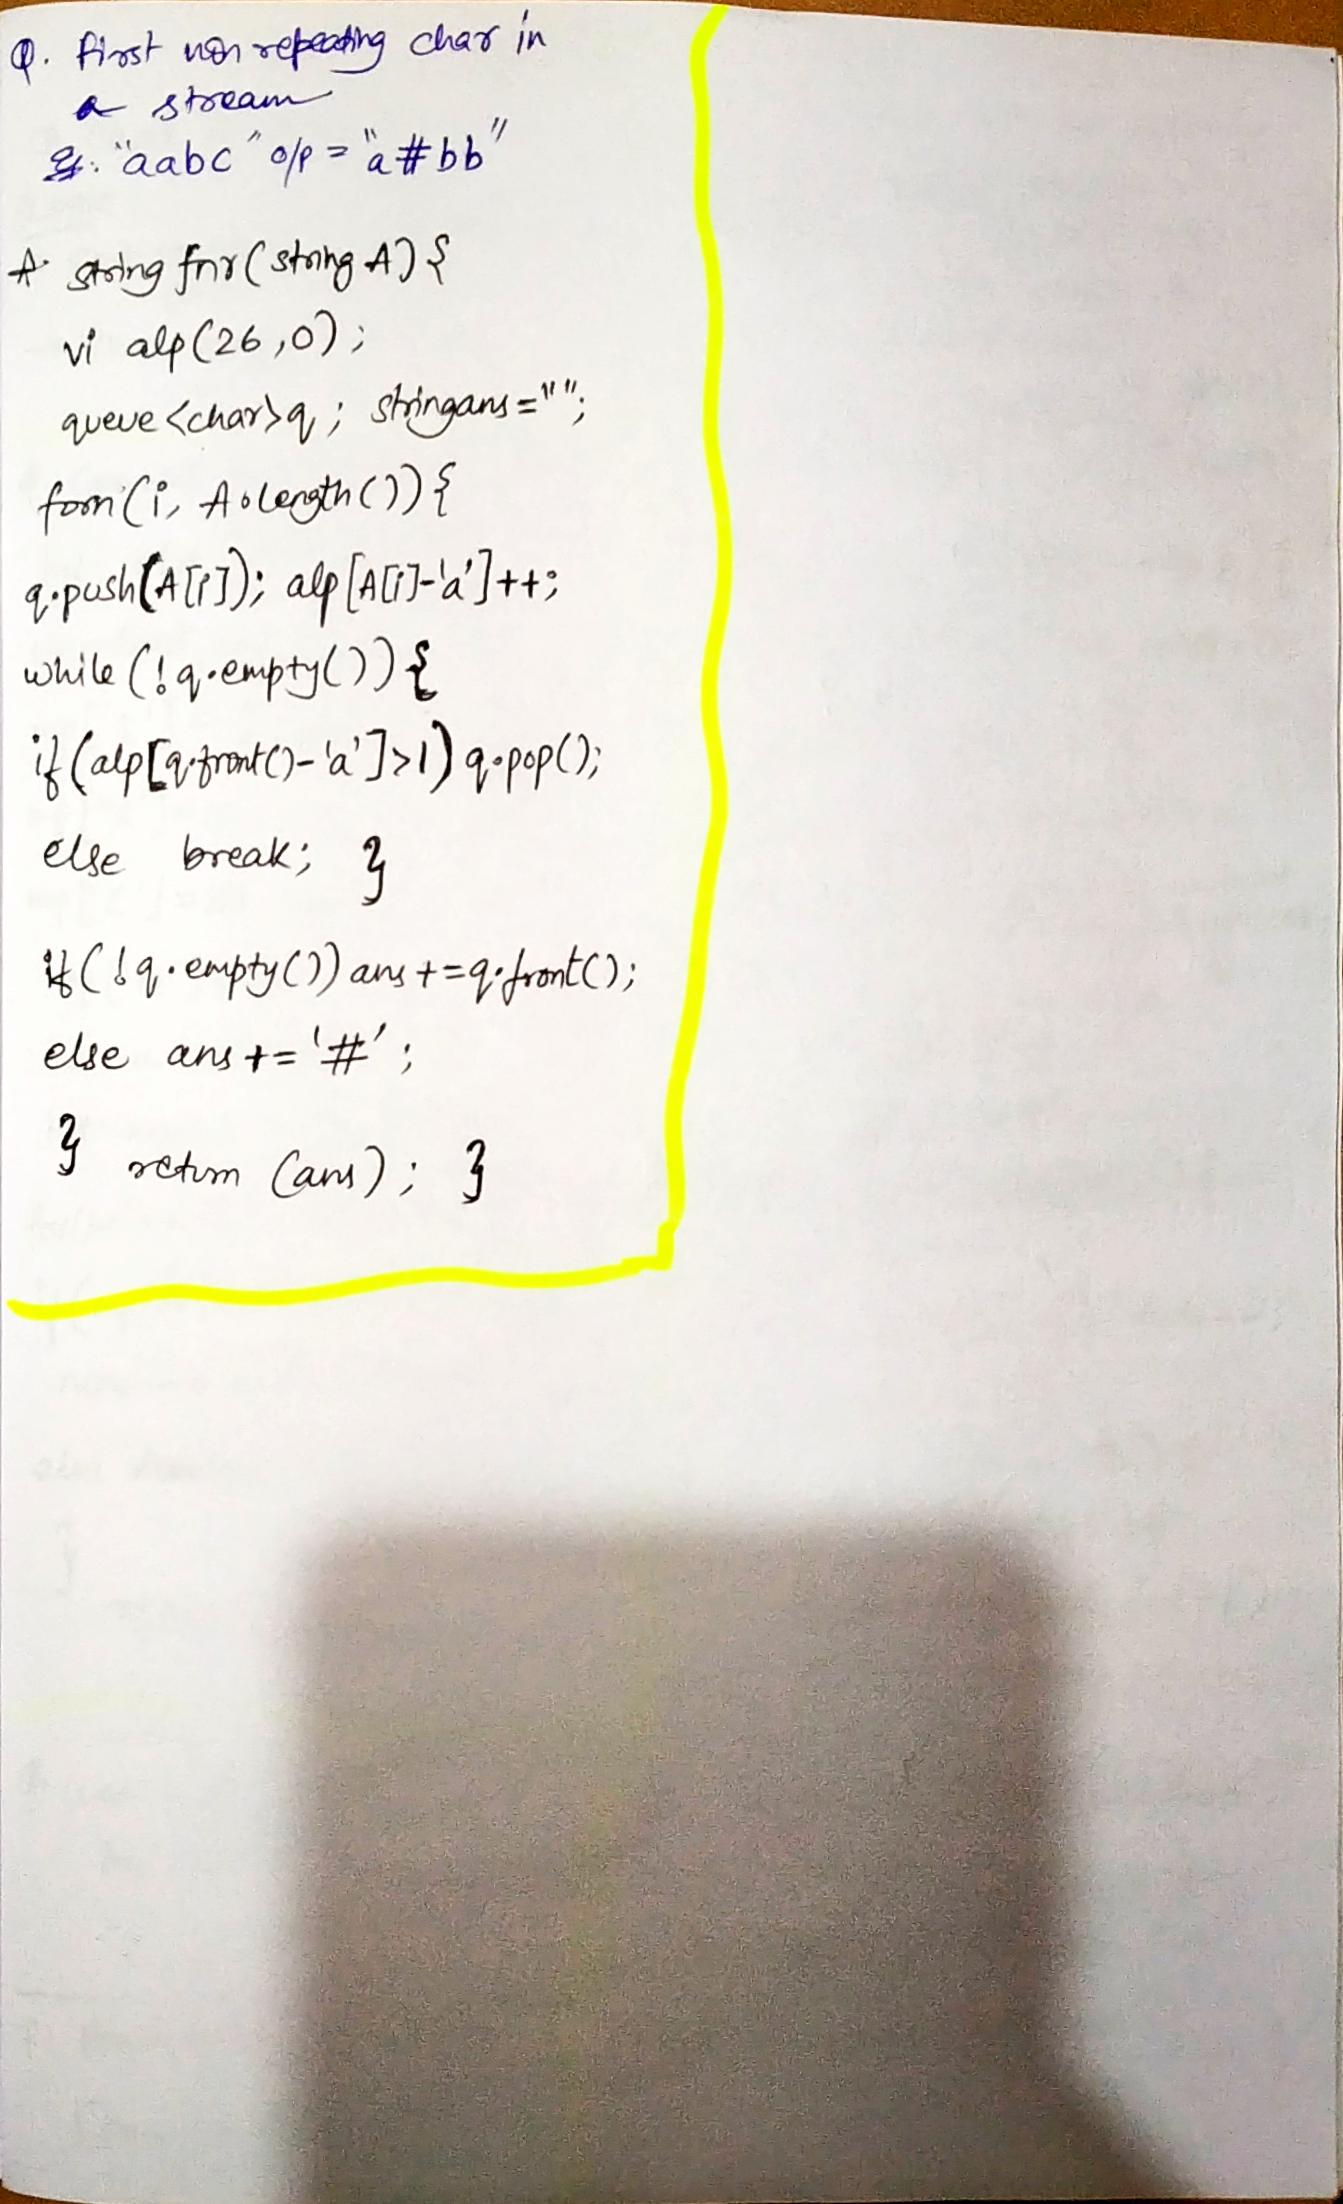 Q. first non repeating char in
a stream
eg. "aabc" o/p = "a#bb"
A. string fnr(string A){
vi alp(26,0);
queue<char>q; string ans="";
forn(i, A.length()){
q.push(A[i]); alp[A[i]-'a']++;
while(!q.empty()){
if(alp[q.front()-'a']>1) q.pop();
else break; }
if(!q.empty()) ans+=q.front();
else ans+='#';
} return (ans); }